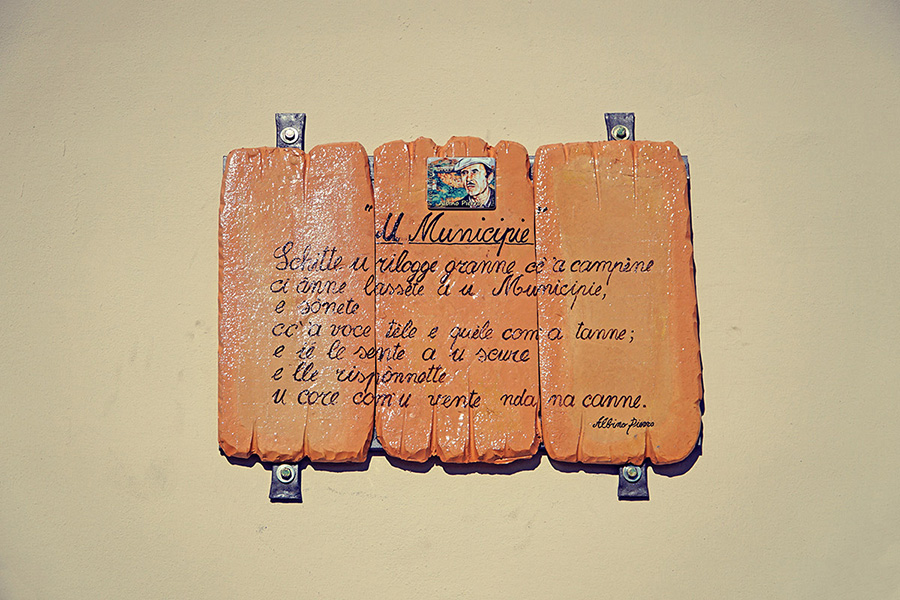 Albino Pierro
"U Municipie"
Schitte u rilogge granne cc'a campène
ci ânne lassète a u Municipie,
e sònete
cc'a voce tèle e quèle com a tanne;
e ié le sente a u scure
e lle rispònnotte
u core com u vente nda na canne.
Albino Pierro